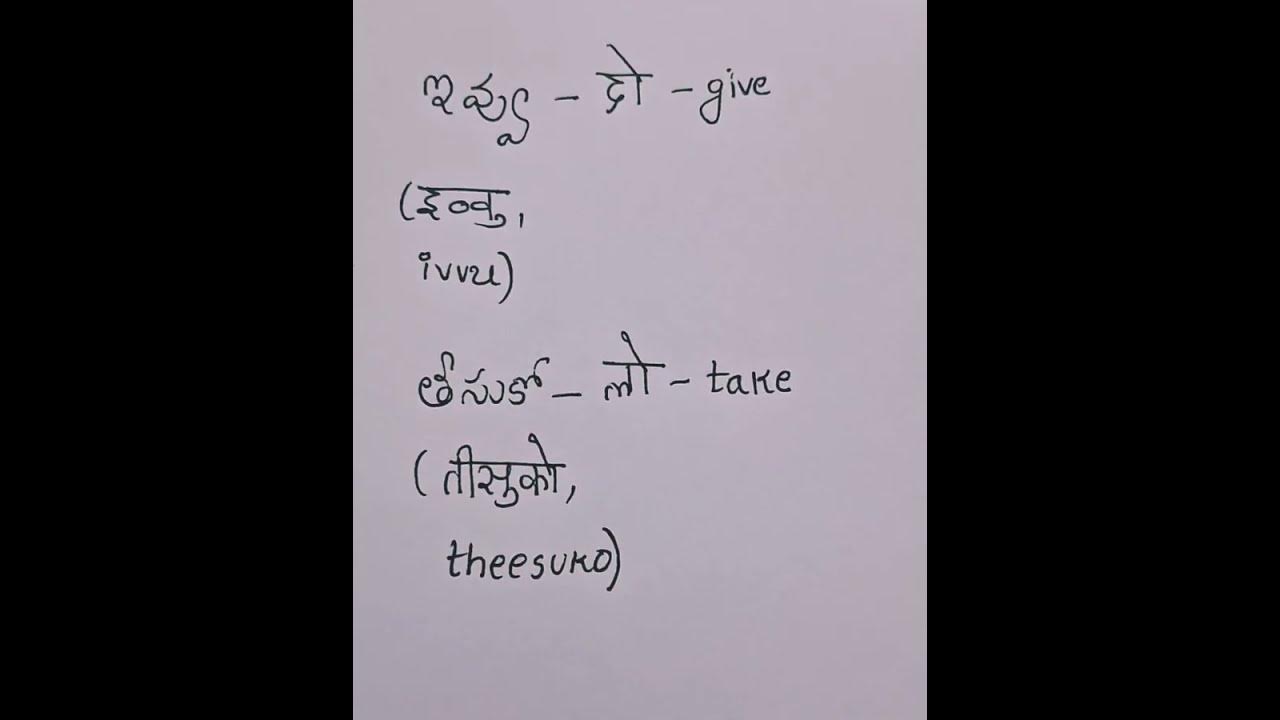 ఇవ్వు - दो - give
(इव्वु,
ivvu)
తీసుకో - लो - take
(तीसुको,
theesuko)